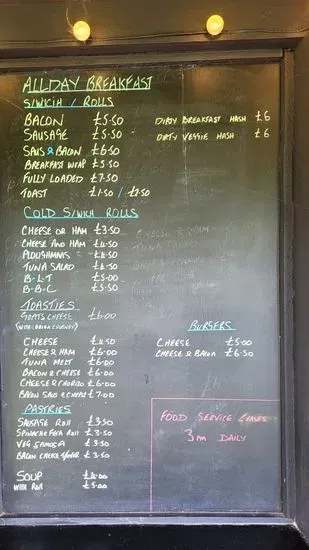 ALLDAY BREAKFAST
S/WICH / ROLLS
BACON £5.50
SAUSAGE £5.50
SAUS & BACON £6.50
BREAKFAST WRAP £5.50
FULLY LOADED £7.50
TOAST £1.50 /
DIRTY VEGGIE HASH £6
BREAKFAST HASH £6
COLD S/WICH ROLLS
CHEESE OR HAM £3.50
CHEESE AND HAM £4.50
£4.50
TUNA SALAD £4.50
B-L-T £5.00
B-B-C £5.50
TOASTIES
GOATS CHEESE £6.00
(WITH ONION CHUTNEY)
CHEESE £4.50
CHEESE & HAM £6.00
TUNA MELT £6.00
BACON & CHEESE £6.00
CHEESE & CHORIZO £6.00
BACON £7.00
BURGERS
CHEESE £5.00
CHEESE & BACON £6.50
PASTRIES
SAUSAGE ROLL £3.50
SPINACH & FETA ROLL £3.50
VEG SAMOSA £3.50
BACON CHEESE £3.50
SOUP £4.00
WITH ROLL £5.00
FOOD SERVICE CEASES
3PM DAILY